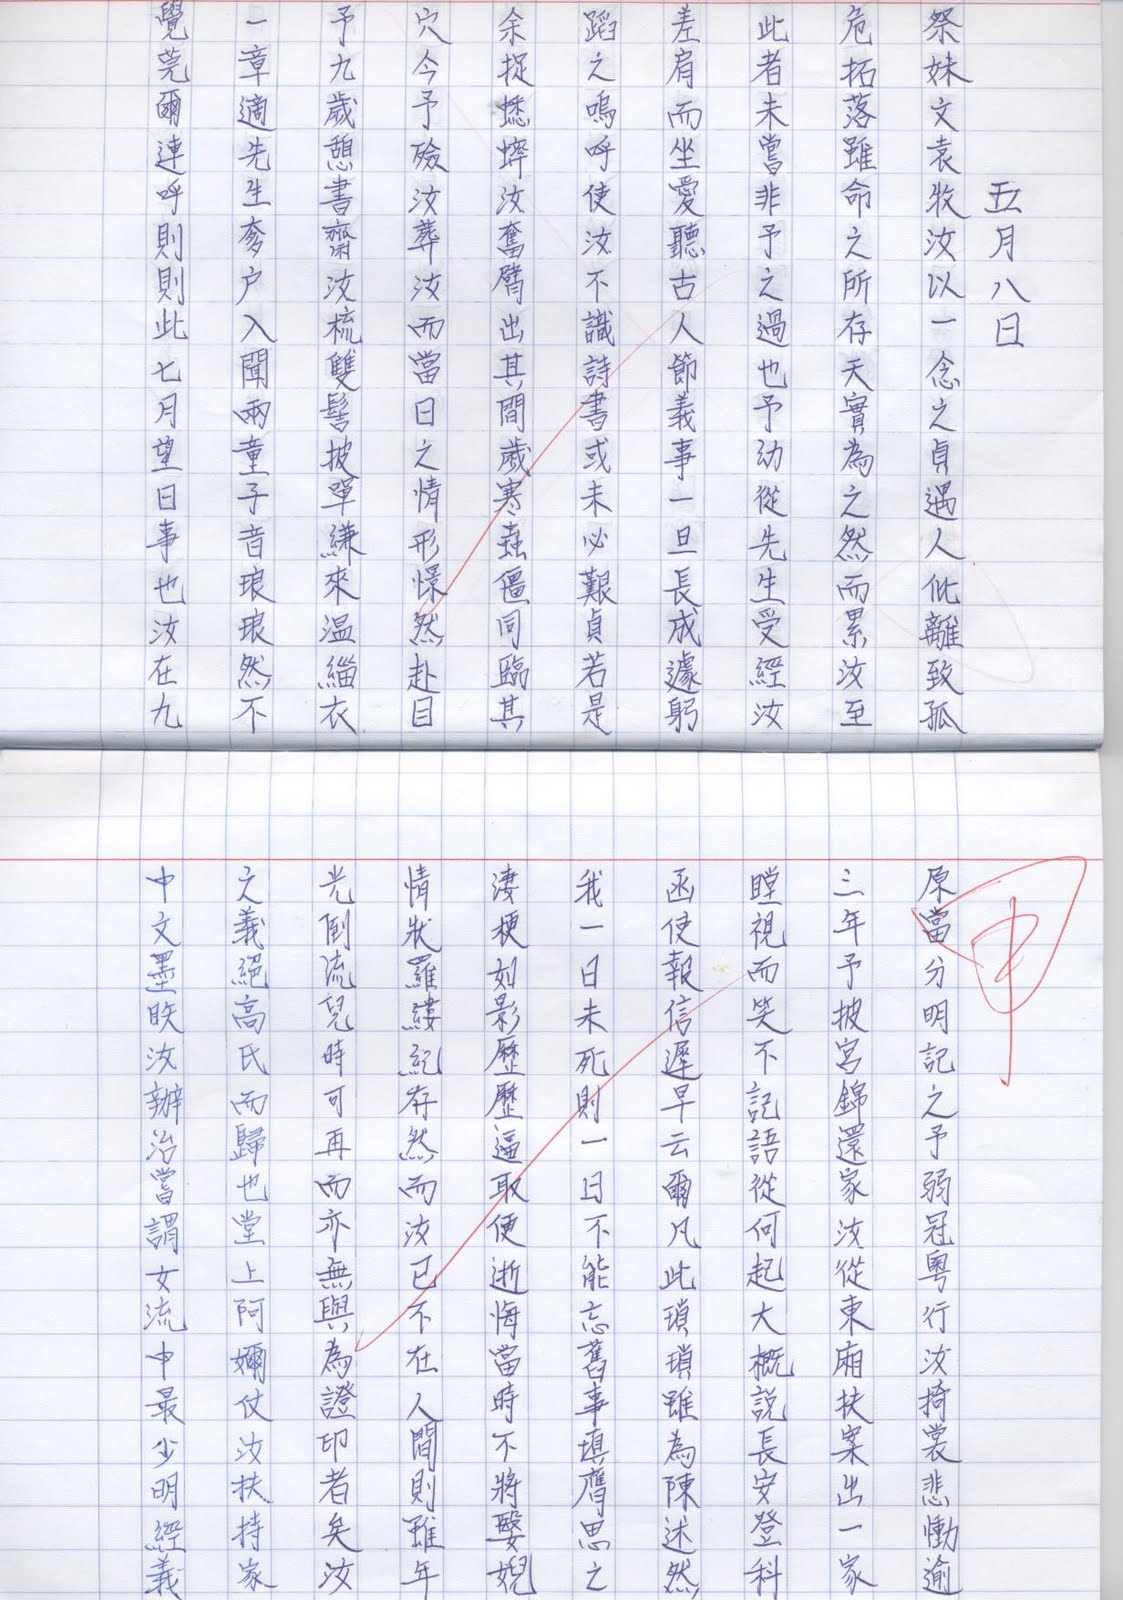 五月八日
祭妹文袁牧汝以一念之貞遇人仳離致孤
危拓落雖命之所存天實為之然而累汝至
此者未嘗非予之過也予幼從先生受經汝
差肩而坐愛聽古人節義事一旦長成遽躬
蹈之嗚呼使汝不識詩書或未必艱貞若是
余捉蟋蟀汝奮臂出其間歲寒蟲僵同臨其
穴今予殮汝葬汝而當日之情形憬然赴目
予九歲憩書齋汝梳雙髻披單縑來溫緇衣
一章適先生奓户入聞兩童子音琅琅然不
覺莞爾連呼則則此七月望日事也汝在九
中
原當分明記之予弱冠粵行汝掎裳悲慟逾
三年予披宮錦還家汝從東廂扶案出一家
瞠視而笑不記語從何起大概說長安登科
函使報信遲早云爾凡此瑣瑣雖為陳述然
我一日未死則一日不能忘舊事填膺思之
淒梗如影歷歷逼取便逝悔當時不將嫛婗
情狀羅縷紀存然而汝已不在人間則雖年
光倒流兒時可再而亦無與為證印者矣汝
之義絕高氏而歸也堂上阿嬭仗汝扶持家
中文墨眣汝辦治嘗謂女流中最少明經義